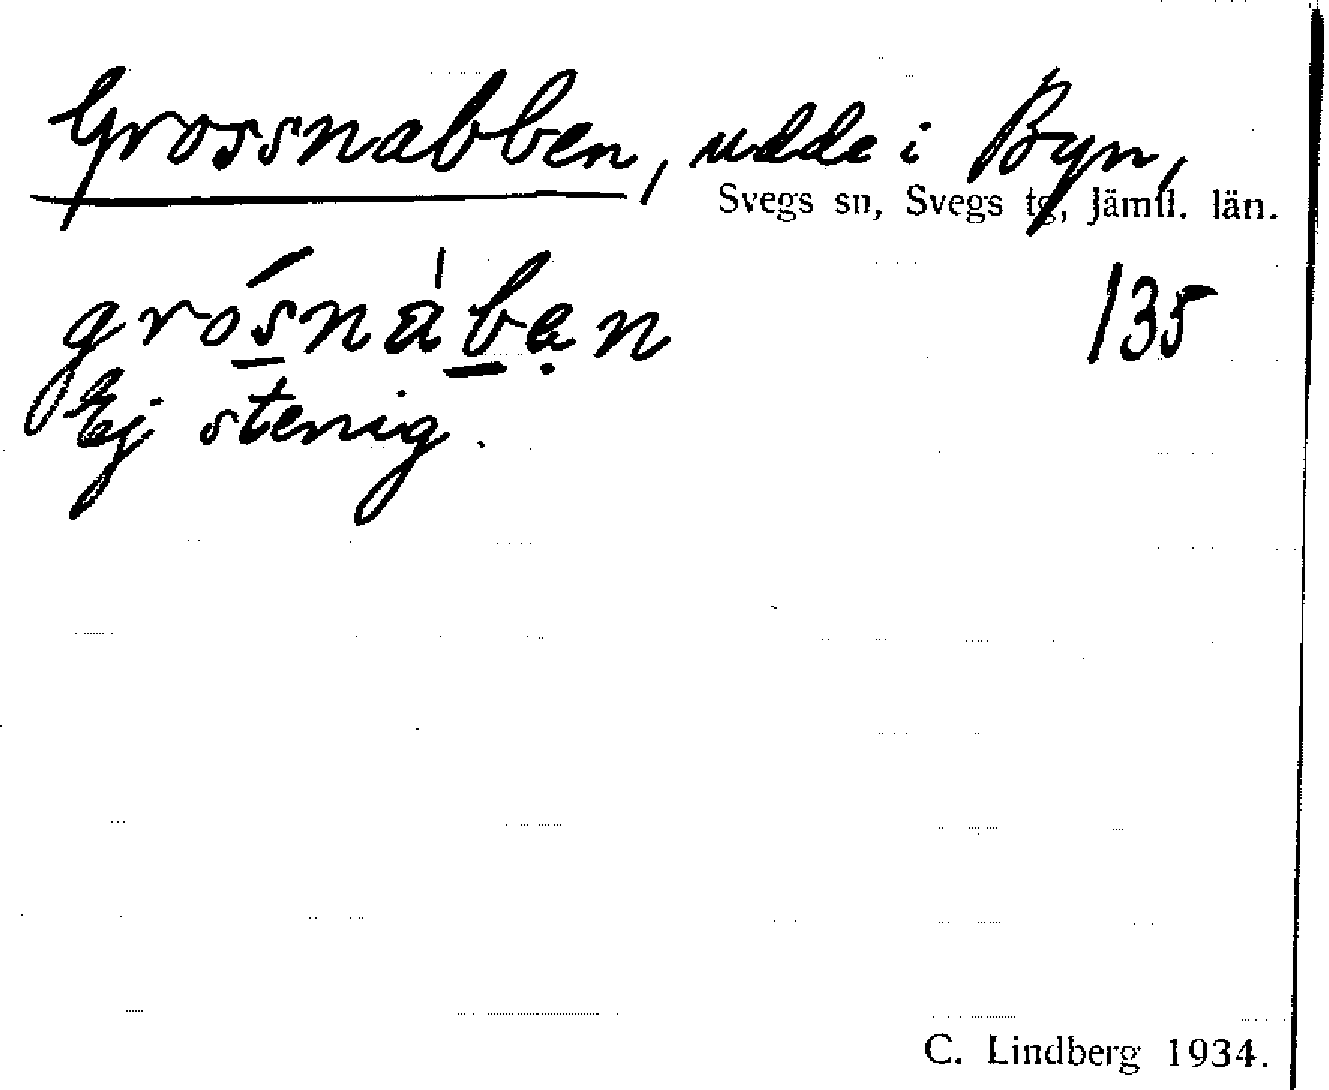 Grossnabben, udde i Byn,
Svegs sn, Svegs tg, Jämtl. län.
grósnàbạn 135
Ej stenig.
C. Lindberg 1934.